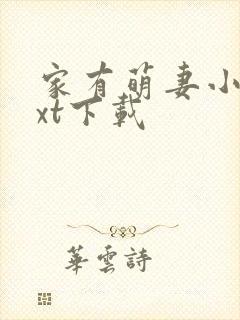 家有萌妻小
xt下載
華雲詩